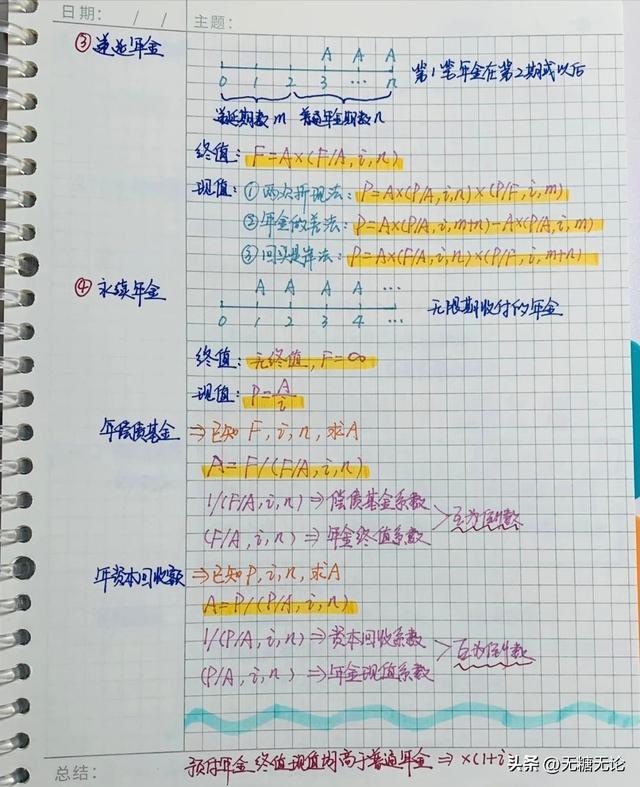 日期: / / 主题:
③ 递延年金
A A A
0 1 2 3 … n
第1笔年金在第2期或以后
递延期数m 普通年金期数n
终值: F=A×(F/A,i,n)
现值: ①两次折现法: P=A×(P/A,i,n)×(P/F,i,m)
②年金做差法: P=A×(P/A,i,m+n)-A×(P/A,i,m)
③回头是岸法: P=A×(F/A,i,n)×(P/F,i,m+n)
④ 永续年金
A A A A …
0 1 2 3 4 …
无限期收付的年金
终值: 无终值, F=∞
现值: P=A/i
年偿债基金 ⇒已知F,i,n,求A
A=F/(F/A,i,n)
1/(F/A,i,n)⇒偿债基金系数
(F/A,i,n)⇒年金终值系数 >互为倒数
年资本回收额 ⇒已知P,i,n,求A
A=P/(P/A,i,n)
1/(P/A,i,n)⇒资本回收系数
(P/A,i,n)⇒年金现值系数 >互为倒数
总结: 预付年金 终值现值均高于普通年金 ⇒ ×(1+i
头条 @无糖无论